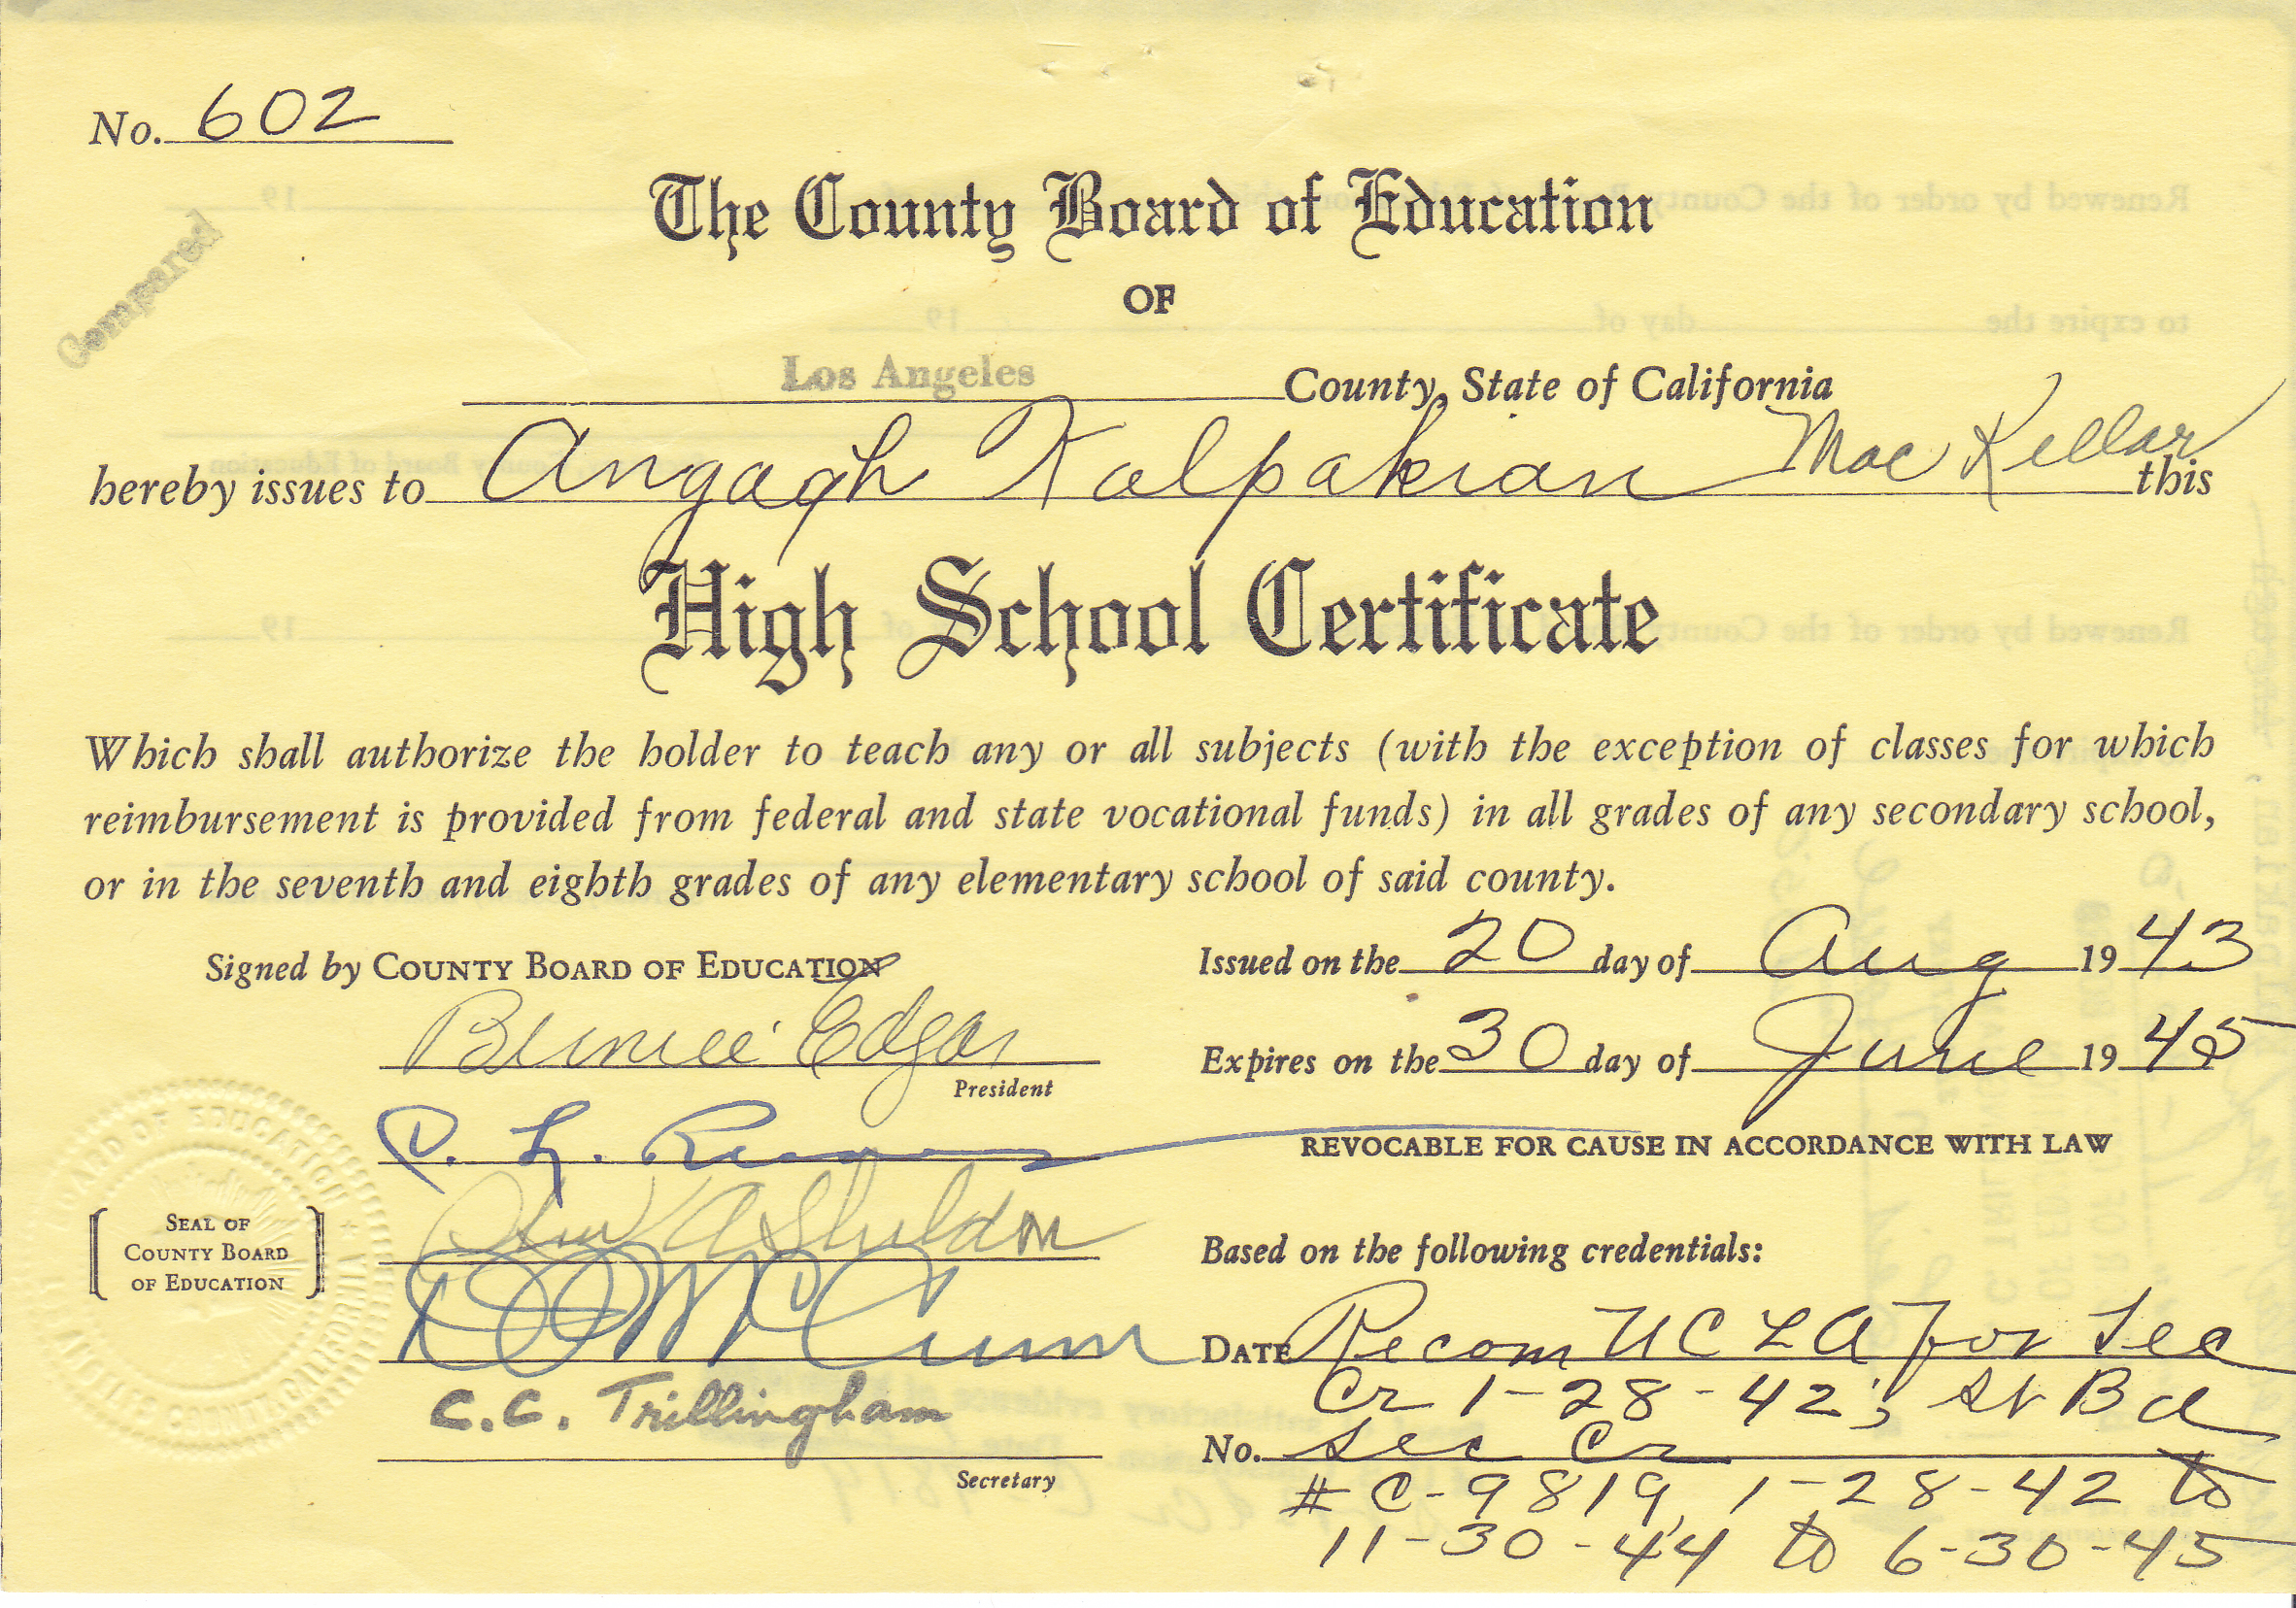 No. 602
Compared
The County Board of Education
OF
Los Angeles County, State of California
hereby issues to Angagh Kalpakian MacKellar this
High School Certificate
Which shall authorize the holder to teach any or all subjects (with the exception of classes for which
reimbursement is provided from federal and state vocational funds) in all grades of any secondary school,
or in the seventh and eighth grades of any elementary school of said county.
Signed by COUNTY BOARD OF EDUCATION
Bernice Edgar
President
C. C. Trillingham
Secretary
SEAL OF
COUNTY BOARD
OF EDUCATION
Issued on the 20 day of Aug 1943
Expires on the 30 day of June 1945
REVOCABLE FOR CAUSE IN ACCORDANCE WITH LAW
Based on the following credentials:
DATE Recom UCLA for Sec
Cr 1-28-42; St Bd
No. Sec Cr
# C-9819, 1-28-42 to
11-30-44 to 6-30-45